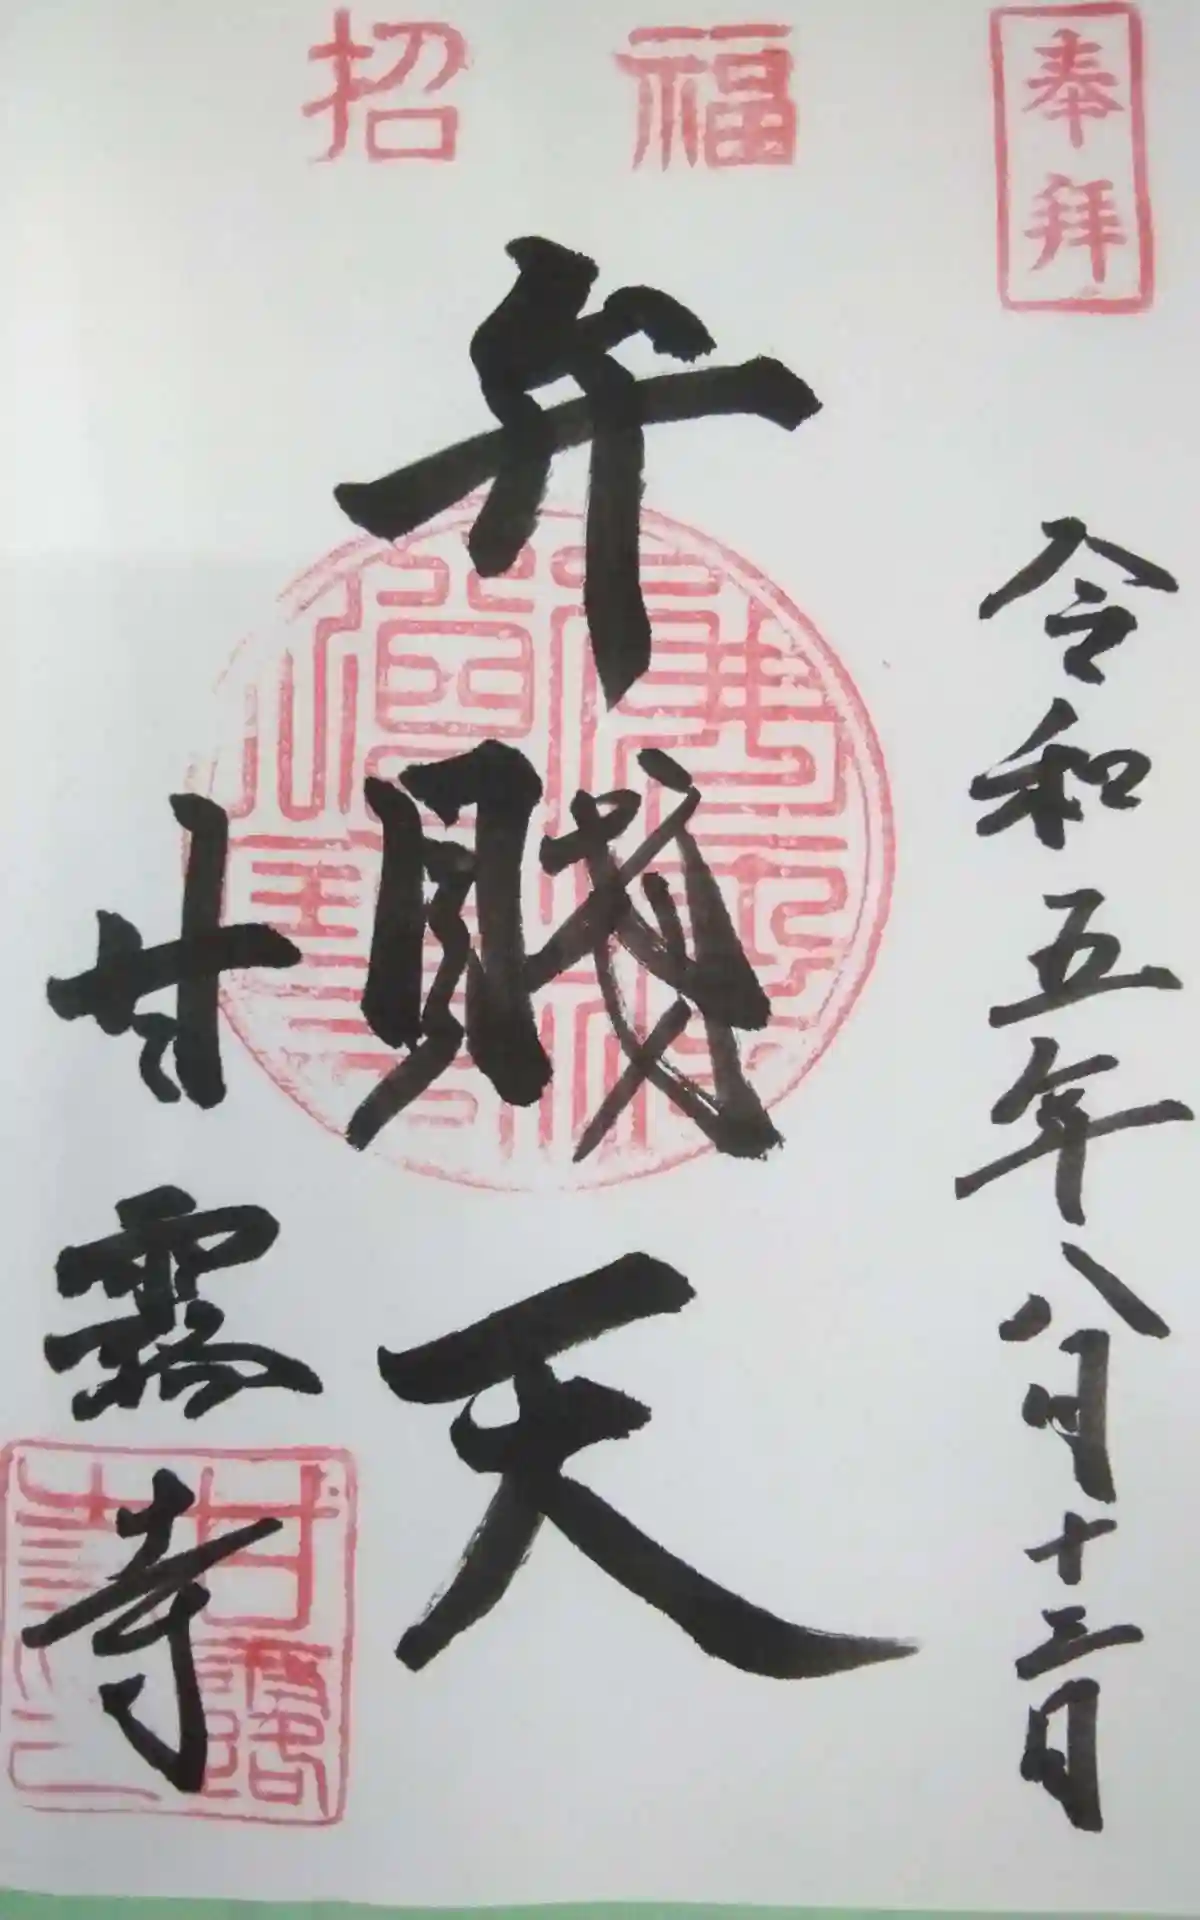 奉拝
令和五年八月十三日
福
招
弁財天
甘露寺